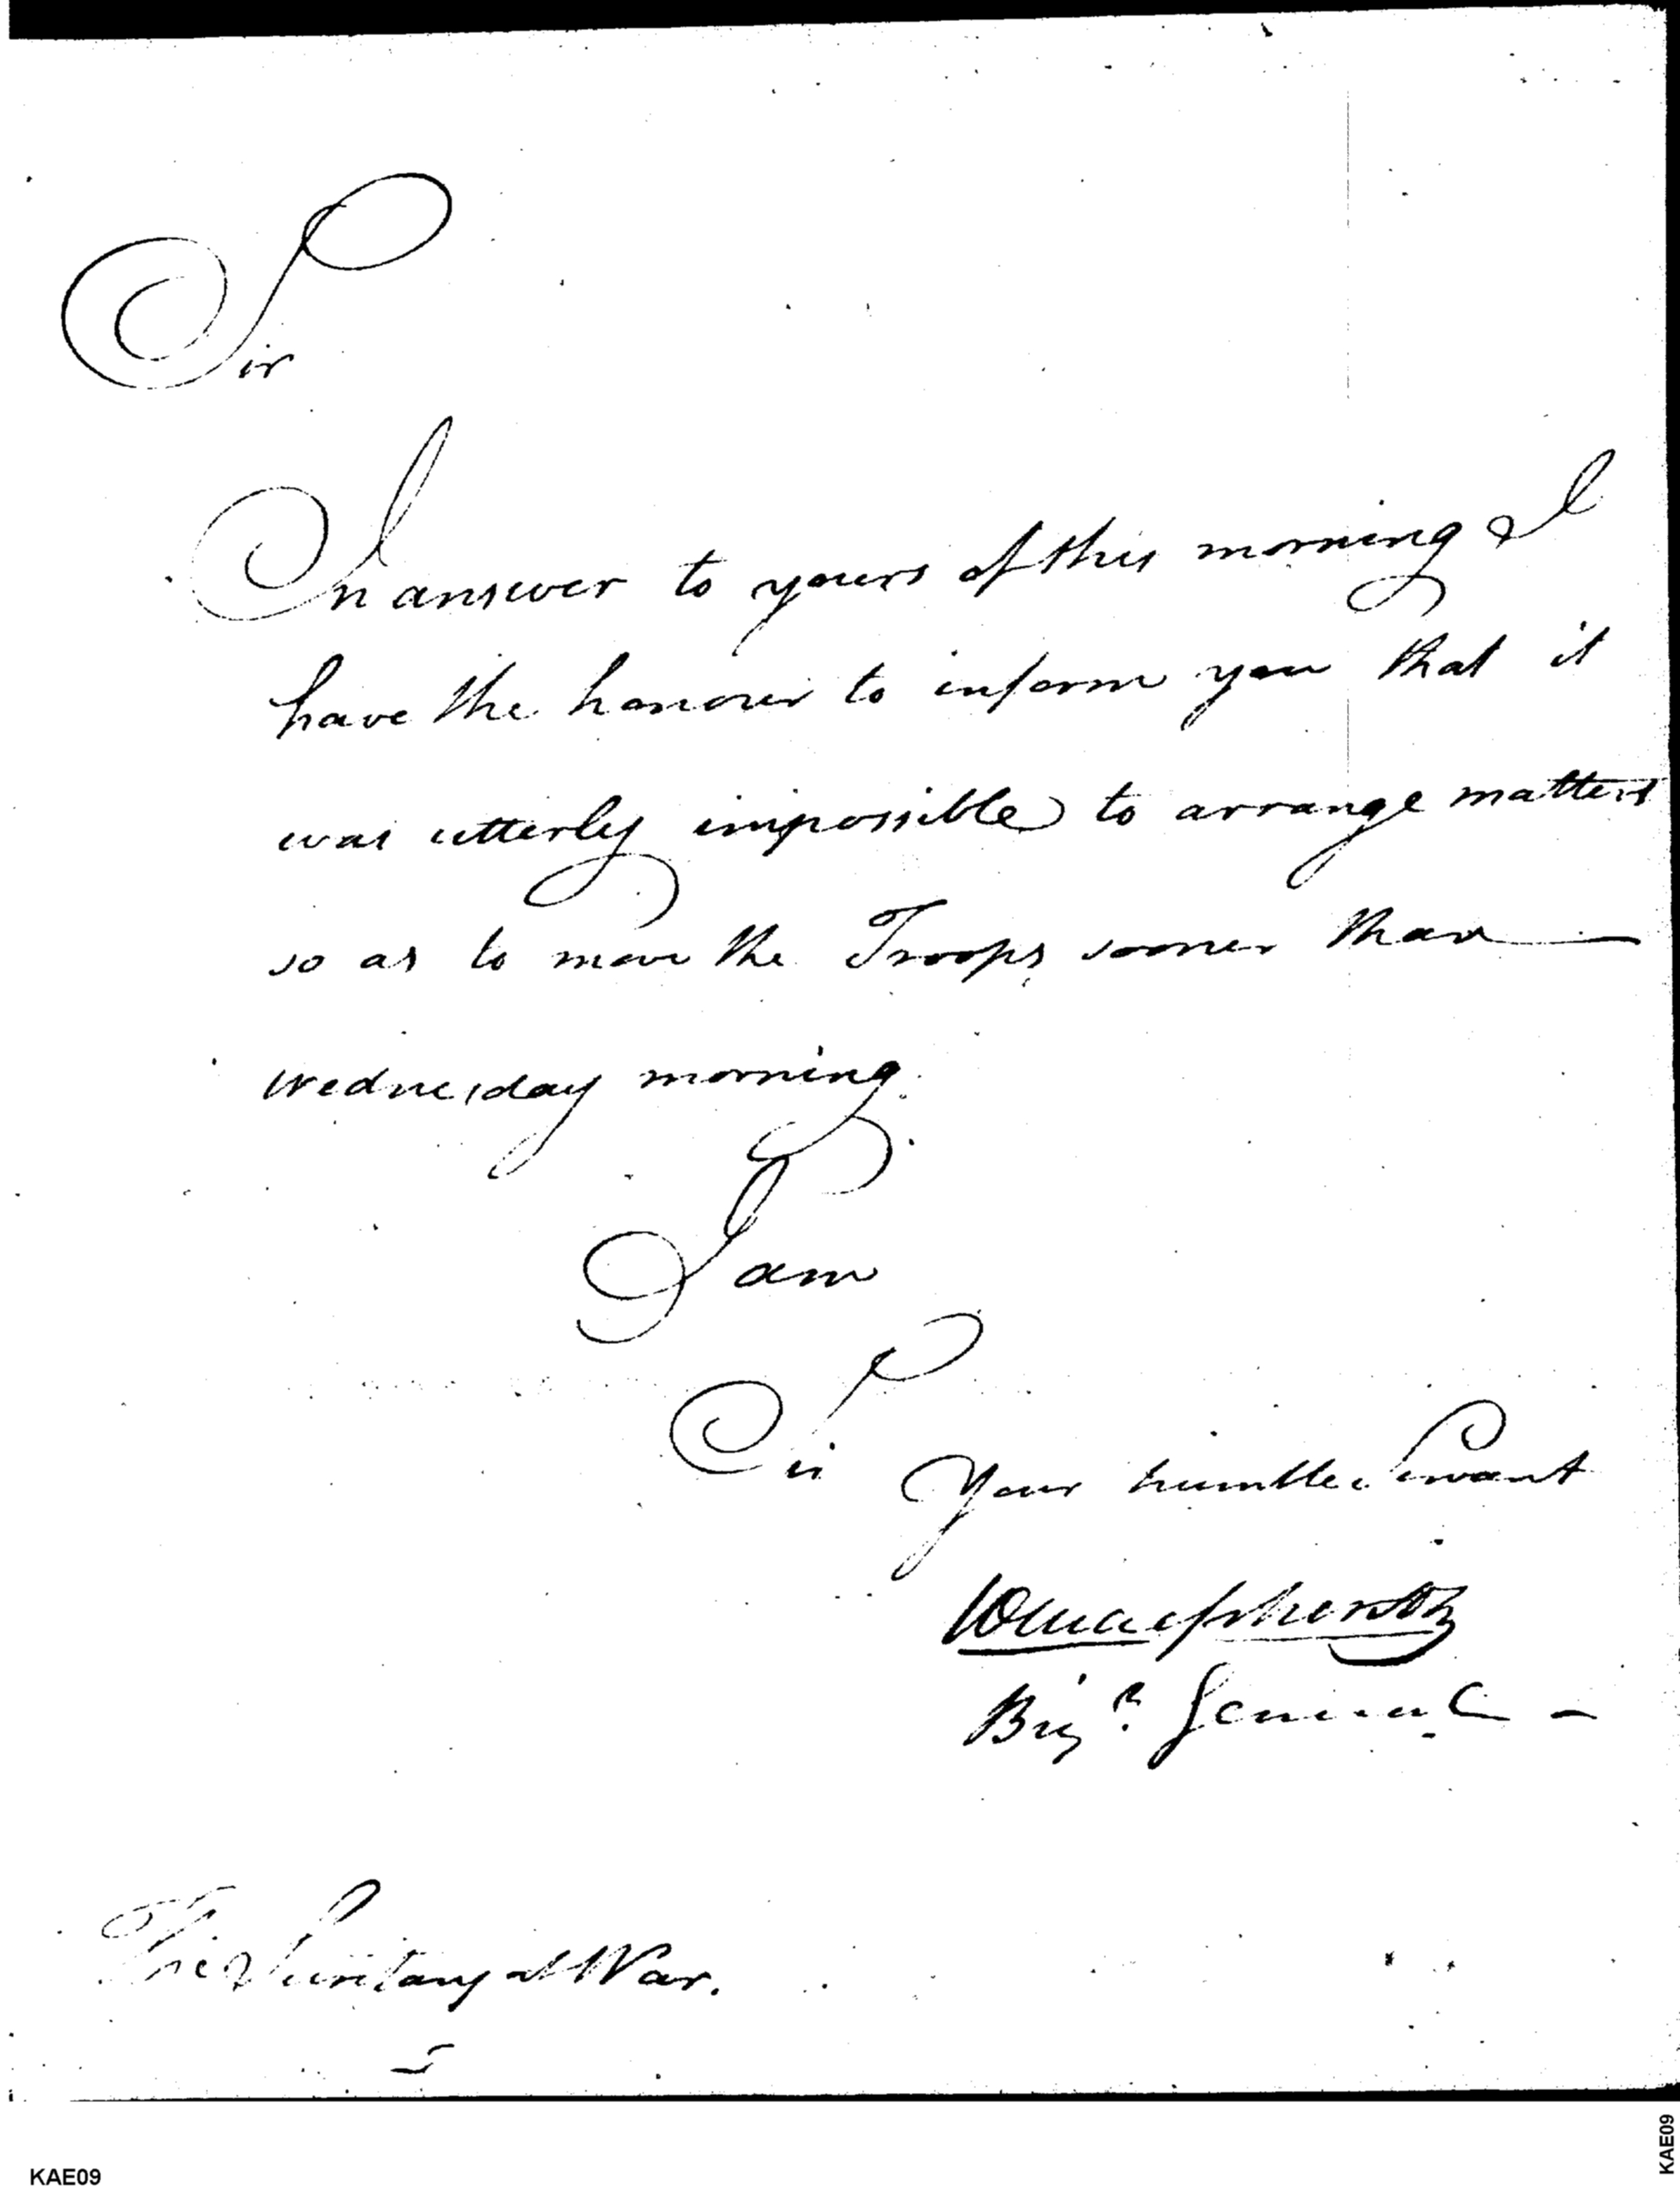 Sir
In answer to yours of this morning I
have the honour to inform you that it
was utterly impossible to arrange matters
so as to move the Troops sooner than
wednesday morning.
I am
Sir Your humble Servant
WMacpherson
Brigr. General
The Secretary at War.
KAE09
KAE09